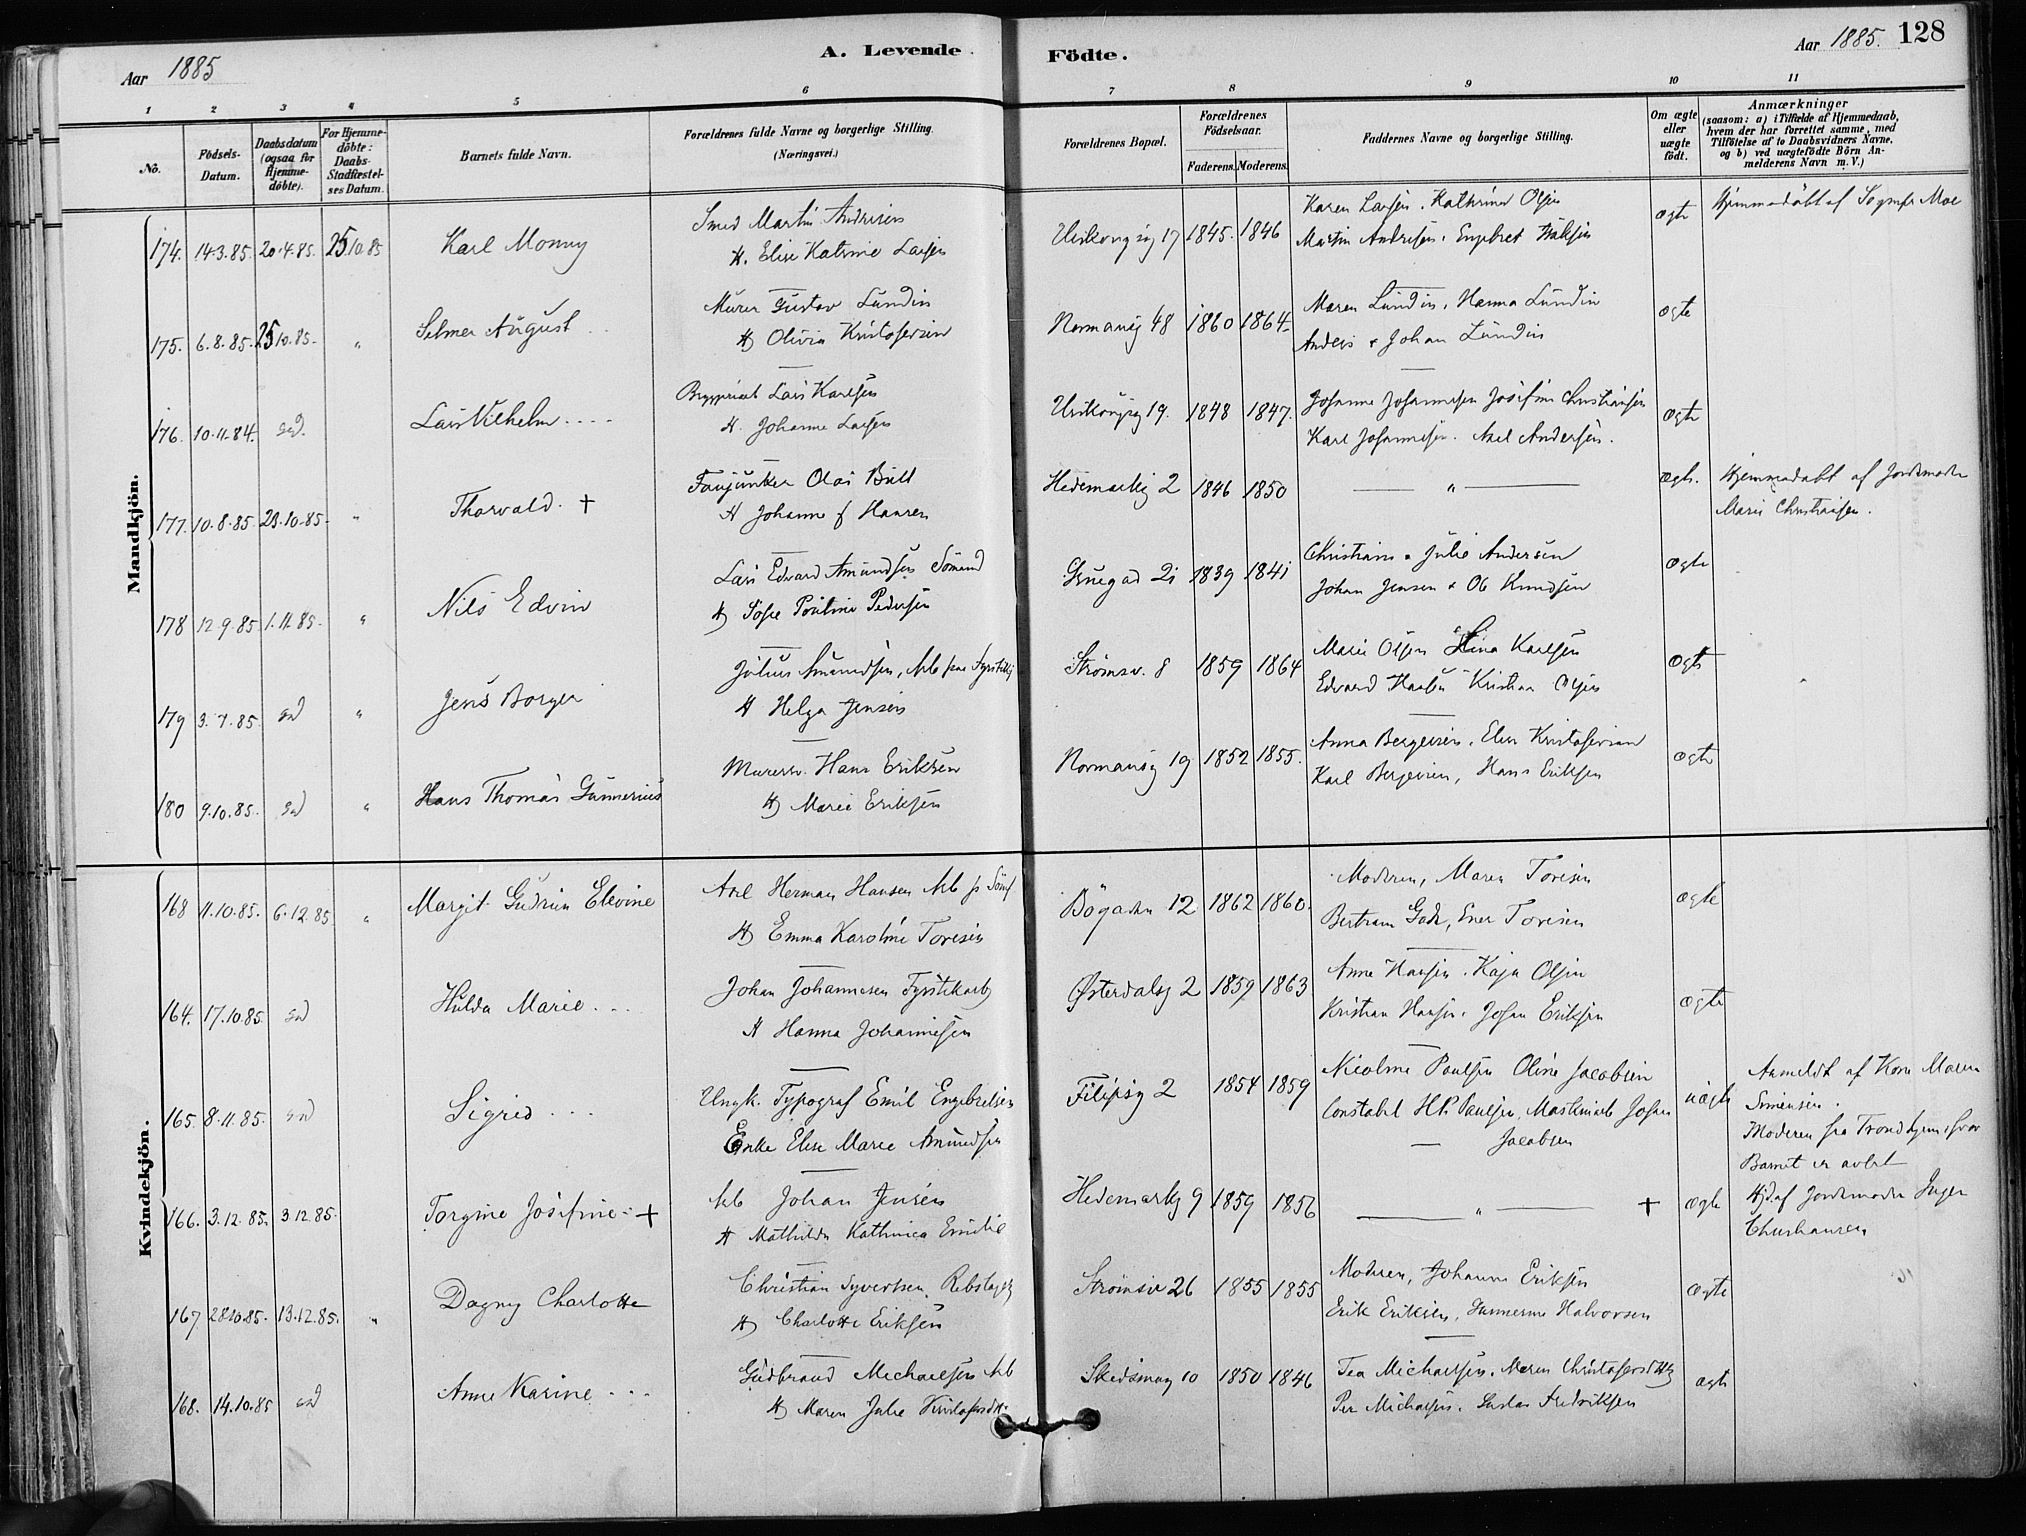 Aar 1885
A. Levende
Födte.
Aar 1885. 128
1 2 3 4 5 6 7 8 9 10 11
No.
Födsels-
Datum.
Daabsdatum
(ogsaa for
Hjemme-
döbte).
For Hjemme-
döbte:
Daabs-
Stadfæstel-
ses Datum.
Barnets fulde Navn.
Forældrenes fulde Navne og borgerlige Stilling.
(Næringsvei.)
Forældrenes Bopæl.
Forældrenes
Födselsaar.
Faderens. Moderens.
Faddernes Navne og borgerlige Stilling.
Om ægte
eller
uægte
födt.
Anmærkninger
(saasom: a) i Tilfælde af Hjemmedaab,
hvem der har forrettet samme, med
Tilföielse af to Daabsvidners Navne,
og b) ved uægtefödte Börn An-
melderens Navn m. V.)
Mandkjön.
174. 14.3.85. 20.4.85. 25.10.85 Karl Monny
Smed Martin Andersen
H. Elise Katrine Larsen
17 1845. 1846
Karen Larsen. Kathrine Olsen
Martin Andersen, Engebret
ægte
Hjemmedøbt af Sognepr Moe
175. 6.8.85. 25.10.85. " Selmer August
Murer Gustav Lundin
H Olivia Kristofersen
Normansg 48 1860 1864
Maren Lundin, Hanna Lundin
Anders & Johan Lundin
ægte
176. 10.11.84. sd. Lars Vilhelm
Lars Karlsen
H. Johanne Larsen
19. 1848 1847.
Johanne Johannesen Josefine Christiansen
Karl Johannesen. Axel Andersen.
ægte
177. 10.8.85. 23.10.85. " Thorvald. +
Olai Bull
H Johanne f Hansen
Hedemarkg 2 1846 1850 "
ægte.
Hjemmedøbt af Jordemoder
Marie Christiansen.
178 12.9.85 1.11.85. " Nils Edvin
Lars Edvard Amundsen Sømand
H Sofie Pouline Pedersen
Gruegad 21 1839 1841
Christiane & Julie Andersen
Johan Jensen & Ole Knudsen
ægte
179 3.7.85. sd " Jens Borger
Julius Amundsen, Arb paa Fyrstikf
H Helga Jensen
Strømsv. 8 1859 1864
Marie Olsen Lina Karlsen
Edvard Hansen Kristian Olsen
ægte
180 9.10.85. sd " Hans Thomas Gunnerius
Murersv. Hans Eriksen
H Marie Eriksen
Normansg 19 1852 1855.
Anna Bergersen. Elen Kristofersen
Karl Bergersen, Hans Eriksen
ægte
Kvindekjön.
168 11.10.85. 6.12.85 " Margit Gudrun Elevine
Axel Herman Hansen Arb
H Emma Karoline Toresen
Bøgaden 12 1862 1860.
Moderen, Maren Toresen
Bertram Gade, Toresen
ægte
164. 17.10.85. sd Hulda Marie
Johan Johannesen Fyrstikarb
H Hanna Johannesen
Østerdalsg 2 1859 1863
Anne Hansen. Kaja Olsen
Kristian Hansen. Johan Eriksen
ægte
165. 8.11.85. sd Sigrid
Ungk. Typograf Emil Engebretsen
Enke Elise Marie Amundsen
Filipsg 2 1854 1859
Nicoline Paulsen Oline Jacobsen
Constabel H. P. Paulsen, Maskinarb Johan
Jacobsen
uægte
Anmeldt af Kone Maren
Simensen.
Moderen fra Trondhjem, hvor
Barnet er avlet
166. 3.12.85. 3.12.85. Torgine Josefine +
Arb Johan Jensen
H Mathilde Kathinca Emilie
Hedemarkg 9 1859 1856 " +
ægte
Hjd. af Jordemoder Inger
Christiansen
167 28.10.85. 13.12.85. " Dagny Charlotte
Christian Syvertsen,
H Charlotte Eriksen
Strømsv 26 1855 1855
Moderen, Johanne Eriksen
Erik Eriksen, Halvorsen
ægte
168. 14.10.85 sd Anne Karine
Gudbrand Michaelsen Arb
H Maren Julie Kristofersdtr.
10 1850 1846
Tea Michaelsen. Maren Christofersdtr
Per Michaelsen. Gustav Fredriksen
ægte